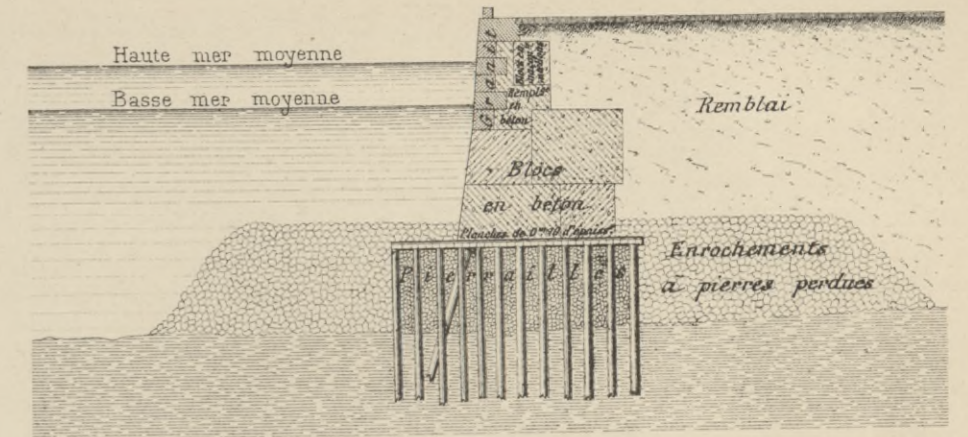 Haute mer moyenne
Basse mer moyenne
Granit
Remplis.
en
béton
Remblai
Blocs
en béton
Planches de 0m10 d'épaiss.r
Pierrailles
Enrochements
à pierres perdues